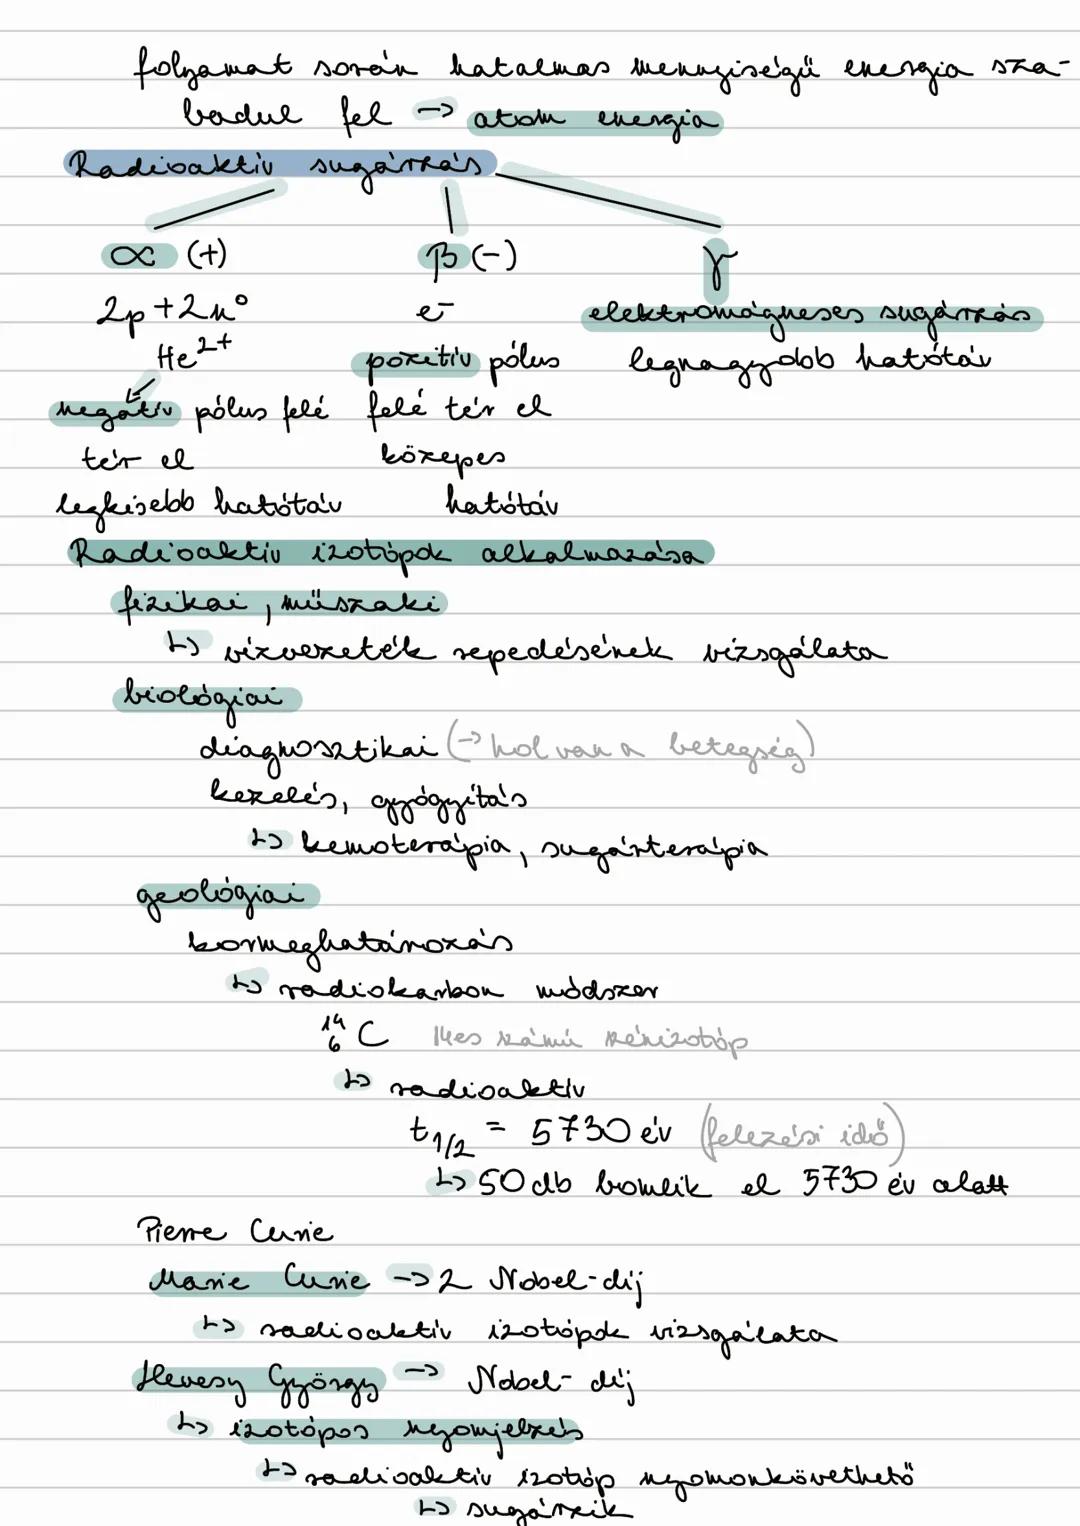 folyamat során hatalmas mennyiségű energia sza-
badul fel → atom energia
Radioaktív sugárzás
α (+) β (-) γ
2p + 2n⁰ e⁻ elektromágneses sugárzás
He²⁺ pozitív pólus legnagyobb hatótáv
negatív pólus felé felé tér el
tér el közepes
legkisebb hatótáv hatótáv
Radioaktív izotópok alkalmazása
fizikai, műszaki
↳ vízvezeték repedésének vizsgálata
biológiai
diagnosztikai (→ hol van a betegség)
kezelés, gyógyítás
↳ kemoterápia, sugárterápia
geológiai
kormeghatározás
↳ radiokarbon módszer
¹⁴₆C 14es számú szénizotóp
↳ radioaktív
t₁/₂ = 5730 év (felezési idő)
↳ 50 db bomlik el 5730 év alatt
Pierre Curie
Marie Curie → 2 Nobel-díj
↳ radioaktív izotópok vizsgálata
Hevesy György → Nobel-díj
↳ izotópos nyomjelzés
↳ radioaktív izotóp nyomonkövethető
↳ sugárzik